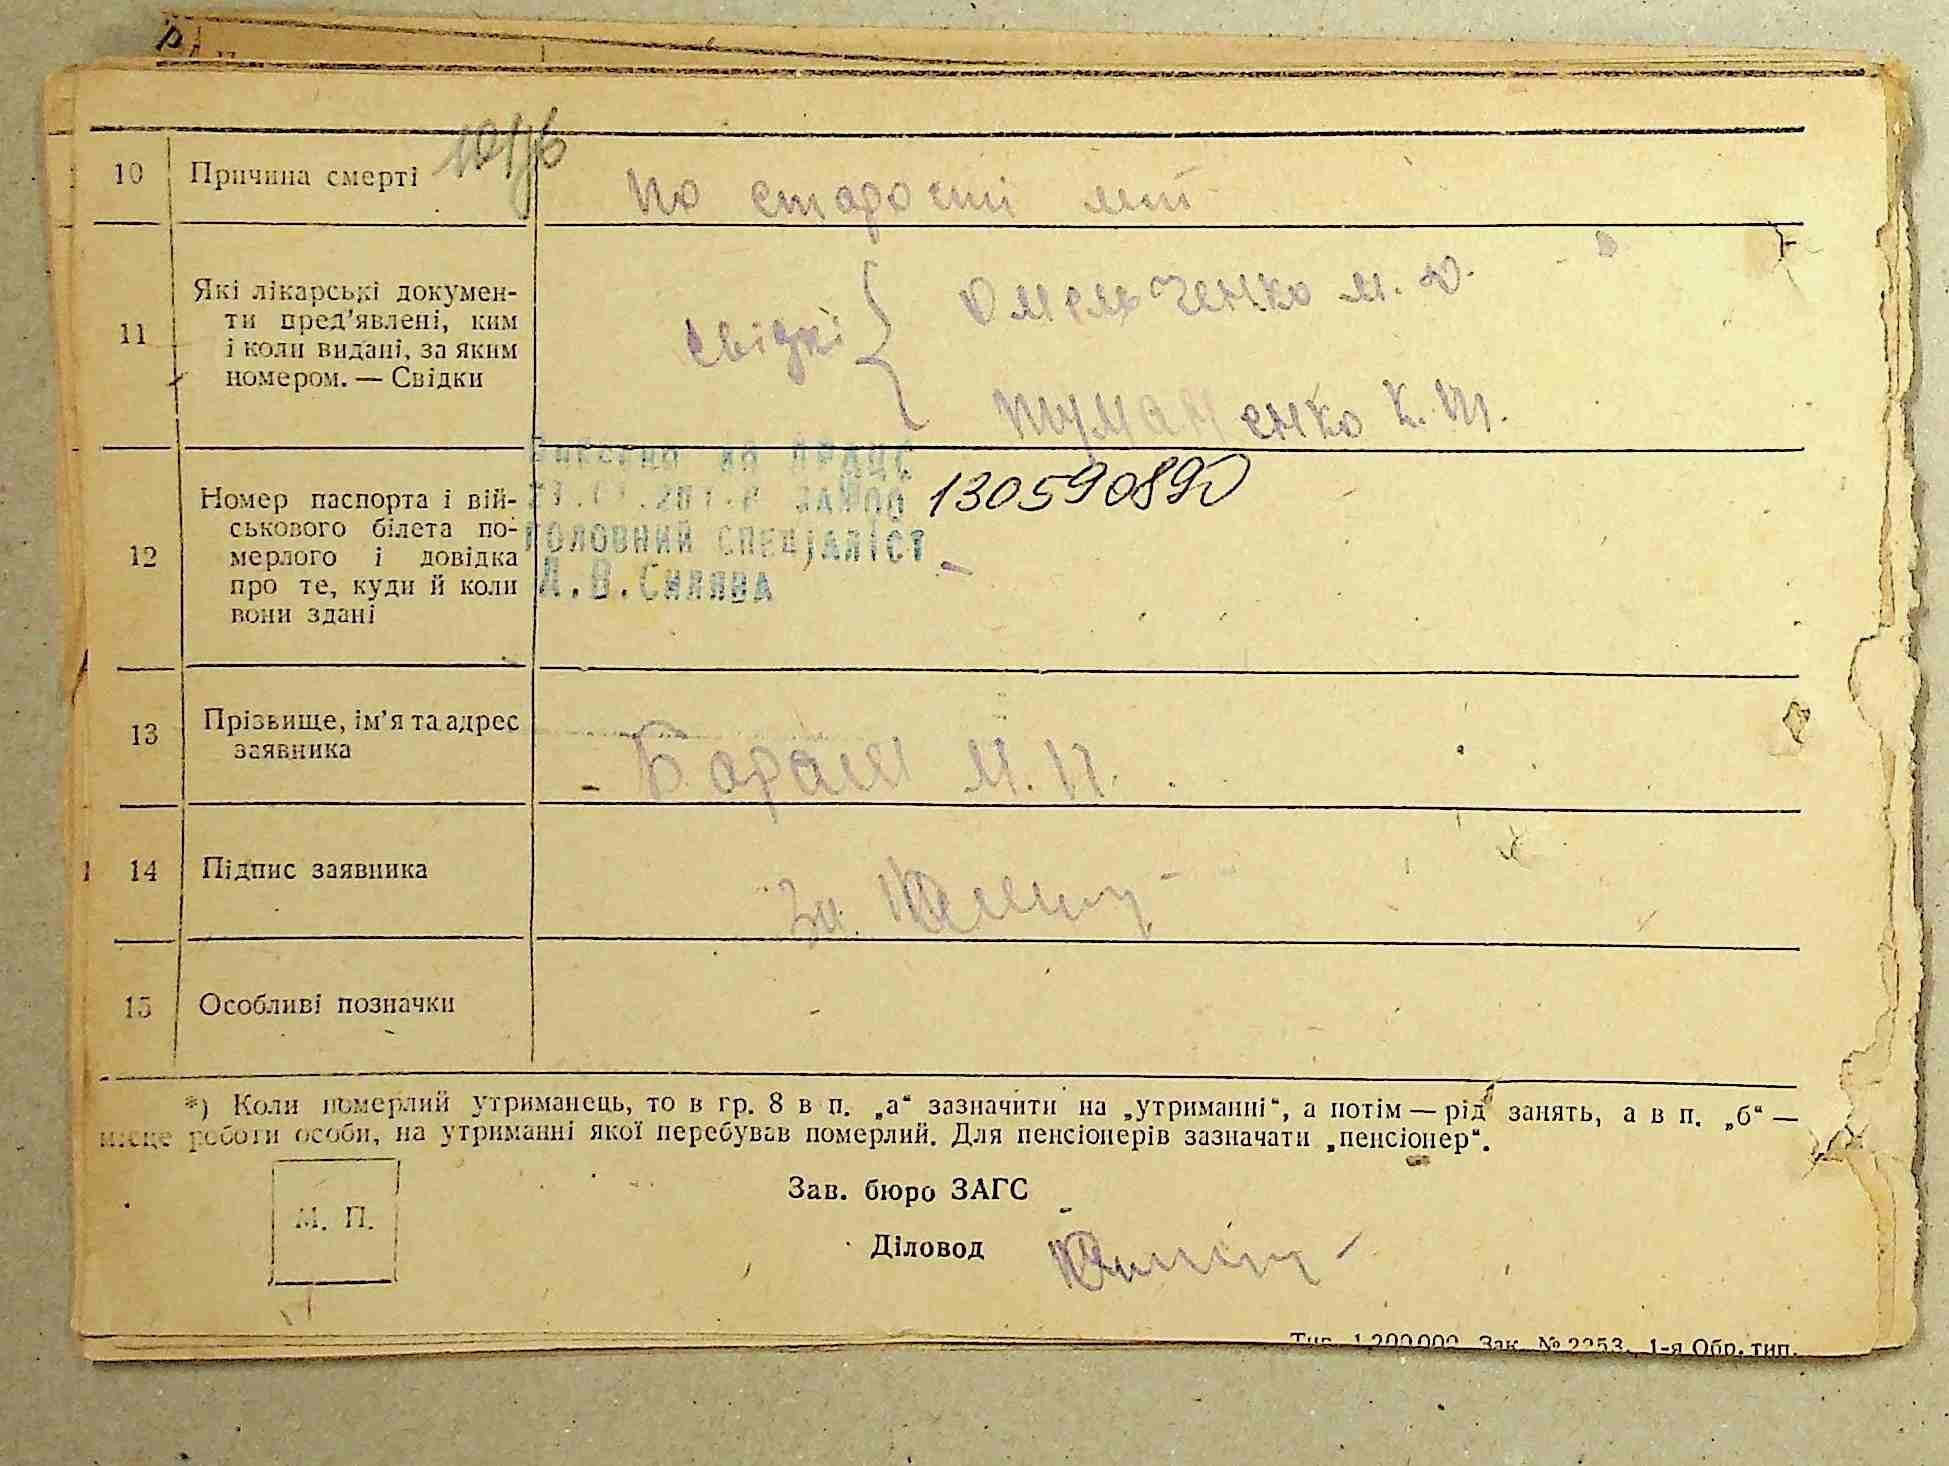 10 Причина смерті
по старості літ
11 Які лікарські докумен-
ти пред’явлені, ким
і коли видані, за яким
номером. — Свідки
свідкі { Омельченко М. Ф.
Туманенко К. Т.
12 Номер паспорта і вій-
ськового білета по-
мерлого і довідка
про те, куди й коли
вони здані
ГОЛОВНИЙ СПЕЦІАЛІСТ
130590890
13 Прізвище, ім’я та адрес
заявника
М. П.
14 Підпис заявника
15 Особливі позначки
*) Коли померлий утриманець, то в гр. 8 в п. „а“ зазначити на „утриманні“, а потім — рід занять, а в п. „б“ —
місце роботи особи, на утриманні якої перебував померлий. Для пенсіонерів зазначати „пенсіонер“.
М. П.
Зав. бюро ЗАГС
Діловод
Тир. 1.200.000 Зак. № 2253. 1-я Обр. тип.